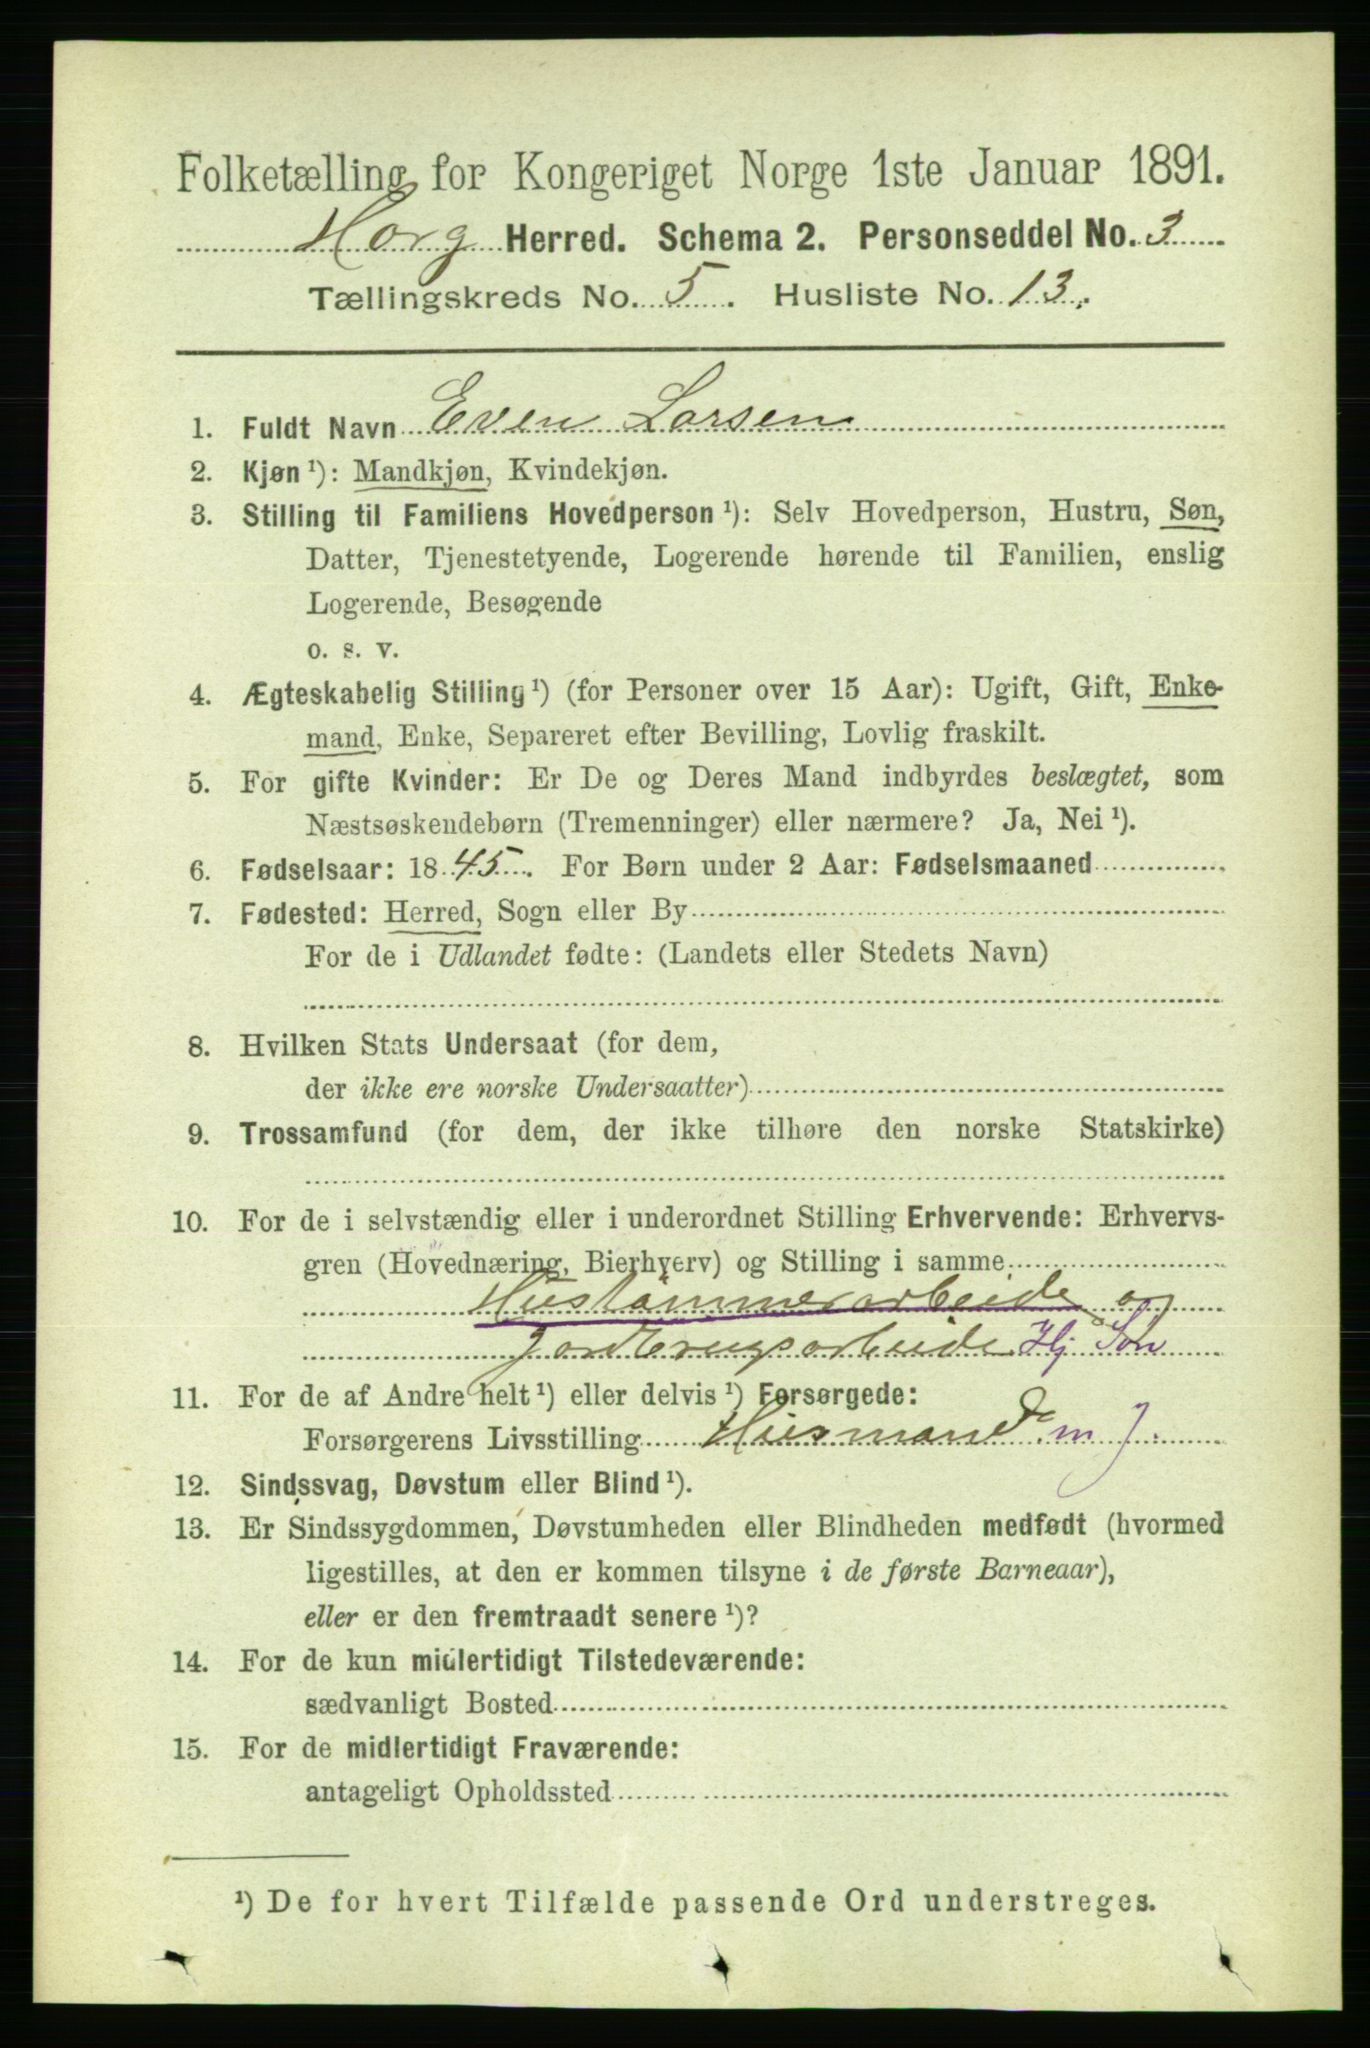 Folketælling for Kongeriget Norge 1ste Januar 1891.
Horg Herred. Schema 2. Personseddel No. 3
Tællingskreds No. 5. Husliste No. 13.
1. Fuldt Navn Even Larsen
2. Kjøn ¹): Mandkjøn, Kvindekjøn.
3. Stilling til Familiens Hovedperson ¹): Selv Hovedperson, Hustru, Søn,
Datter, Tjenestetyende, Logerende hørende til Familien, enslig
Logerende, Besøgende
o. s. v.
4. Ægteskabelig Stilling ¹) (for Personer over 15 Aar): Ugift, Gift, Enke-
mand, Enke, Separeret efter Bevilling, Lovlig fraskilt.
5. For gifte Kvinder: Er De og Deres Mand indbyrdes beslægtet, som
Næstsøskendebørn (Tremenninger) eller nærmere? Ja, Nei ¹).
6. Fødselsaar: 1845. For Børn under 2 Aar: Fødselsmaaned
7. Fødested: Herred, Sogn eller By
For de i Udlandet fødte: (Landets eller Stedets Navn)
8. Hvilken Stats Undersaat (for dem,
der ikke ere norske Undersaatter)
9. Trossamfund (for dem, der ikke tilhøre den norske Statskirke)
10. For de i selvstændig eller i underordnet Stilling Erhvervende: Erhvervs-
gren (Hovednæring, Bierhverv) og Stilling i samme
Hustømmerarbeide og
Jordbrugsarbeide Hj Søn
11. For de af Andre helt ¹) eller delvis ¹) Forsørgede:
Forsørgerens Livsstilling Husmand m J.
12. Sindssvag, Døvstum eller Blind ¹).
13. Er Sindssygdommen, Døvstumheden eller Blindheden medfødt (hvormed
ligestilles, at den er kommen tilsyne i de første Barneaar),
eller er den fremtraadt senere ¹)?
14. For de kun midlertidigt Tilstedeværende:
sædvanligt Bosted
15. For de midlertidigt Fraværende:
antageligt Opholdssted
¹) De for hvert Tilfælde passende Ord understreges.